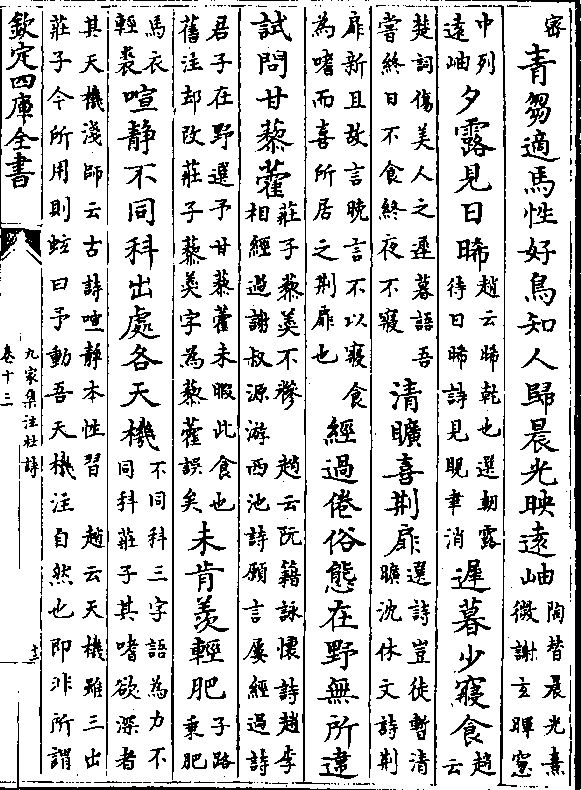 密
青芻適馬性好鳥知人歸晨光映遠岫
陶替晨光熹
微謝玄暉窻
中列
遠岫
夕露見日晞
趙云晞乾也選朝露
待日晞詩見晛聿消
遲暮少寢食
趙云
楚詞傷美人之遲暮語吾
嘗終日不食終夜不寢
清曠喜荆扉
選詩豈徒暫清
曠沈休文詩荆
扉新且故言晚言不以寢食
為嗜而喜所居之荆扉也
經過倦俗態在野無所違
試問甘藜藿
莊子藜羮不糝 趙云阮籍詠懷詩趙李
相經過謝叔源游西池詩願言屢經過詩
君子在野選予甘藜藿未暇此食也
舊注却改莊子藜羮字為藜藿誤矣
未肯羡輕肥
子路
乘肥
馬衣
輕裘
喧静不同科出處各天機
不同科三字語為力不
同科莊子其嗜欲深者
其天機淺師云古詩喧静本性習 趙云天機雖三出
莊子今所用則蚿曰予動吾天機注自然也即非所謂
欽定四庫全書
九家集注杜詩
卷十三
十三